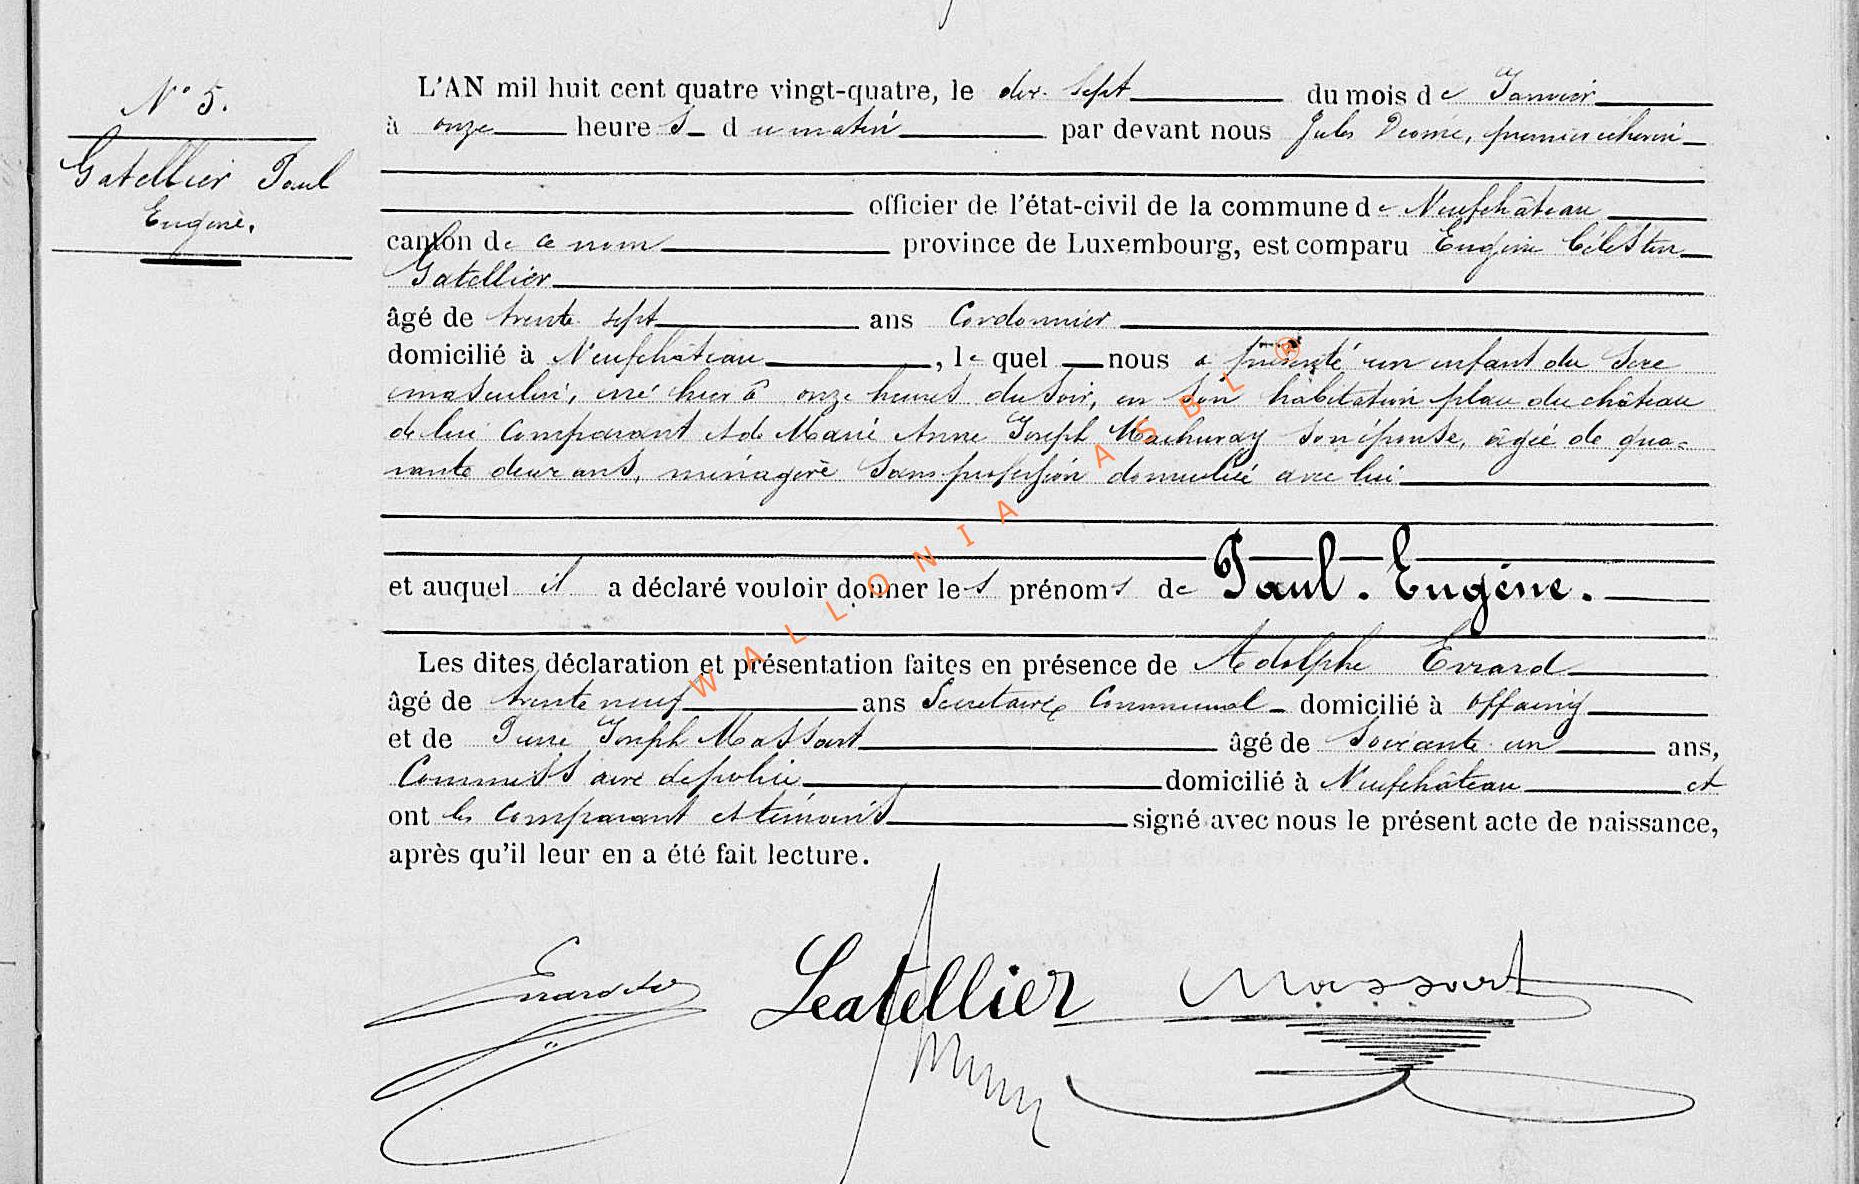 N° 5.
Gatellier Paul
Eugène.
L'AN mil huit cent quatre vingt-quatre, le dix sept du mois de Janvier
à onze heures du matin par devant nous Jules premier échevin
officier de l'état-civil de la commune de Neufchâteau
canton de ce nom province de Luxembourg, est comparu Eugène Célestin
Gatellier
âgé de trente sept ans Cordonnier
domicilié à Neufchâteau, lequel nous a présenté un enfant du sexe
masculin, né hier à onze heures du soir, en son habitation place du château
de lui Comparant et de Marie Anne Joseph Machuray son épouse, âgée de qua=
rante deux ans, ménagère sans profession domiciliée avec lui
et auquel il a déclaré vouloir donner les prénoms de Paul. Eugène.
Les dites déclaration et présentation faites en présence de Adolphe Evrard
âgé de trente neuf ans Secrétaire Communal domicilié à Offaing
et de Pierre Joseph Massart âgé de Soixante un ans,
Commissaire de police domicilié à Neufchâteau et
ont les Comparant et témoins signé avec nous le présent acte de naissance,
après qu'il leur en a été fait lecture.
Leatellier Massart
WALLONIA ASBL ®